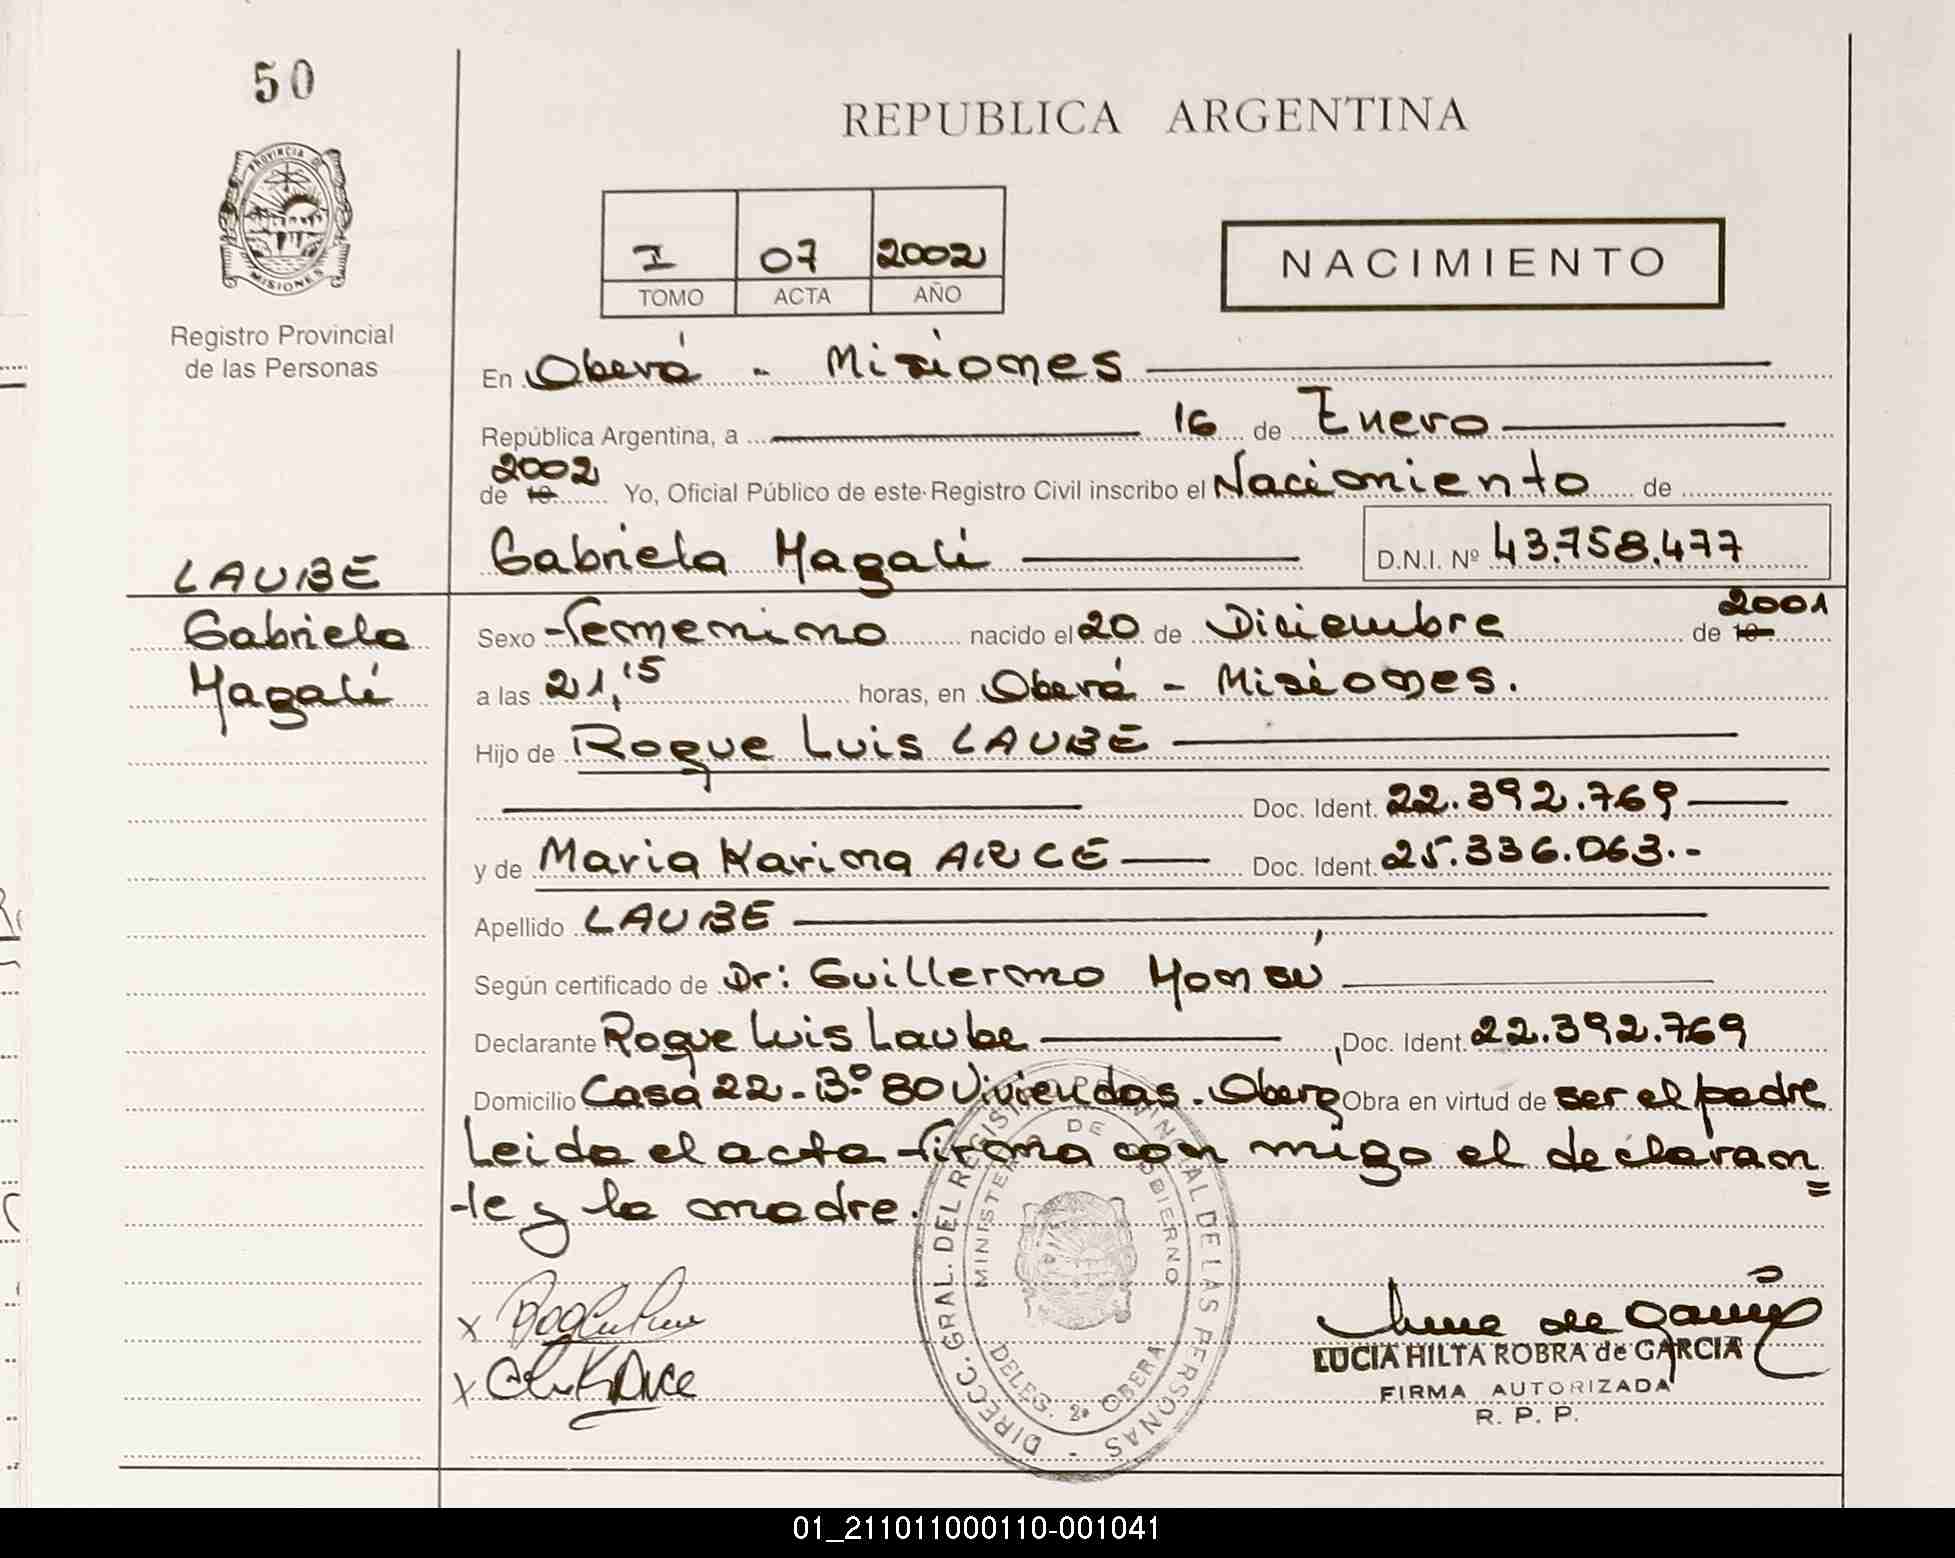 50
REPUBLICA ARGENTINA
PROVINCIA DE MISIONES
Registro Provincial
de las Personas
I 07 2002
TOMO ACTA AÑO
NACIMIENTO
En Oberá - Misiones
República Argentina, a 16 de Enero
de 19 2002 Yo, Oficial Público de este Registro Civil inscribo el Nacimiento de
Gabriela Magalí D.N.I. Nº 43.758.477
LAUBE
Gabriela
Magalí
Sexo femenino nacido el 20 de Diciembre de 19 2001
a las 21,15 horas, en Oberá - Misiones.
Hijo de Roque Luis LAUBE
Doc. Ident. 22.392.769
y de Maria Karina ARCE Doc. Ident. 25.336.063.-
Apellido LAUBE
Según certificado de Dr: Guillermo Monsú
Declarante Roque Luis Laube, Doc. Ident. 22.392.769
Domicilio Casa 22 - Bº 80 Viviendas. Oberá Obra en virtud de ser el padre
Leida el acta firma con migo el declaran=
te y la madre.
DIRECC. GRAL. DEL REGISTRO PROVINCIAL DE LAS PERSONAS -
MINISTERIO DE GOBIERNO
DELEG. 2ª OBERA
x
x
de Garcia
LUCIA HILTA ROBRA de GARCIA
FIRMA AUTORIZADA
R. P. P.
01_211011000110-001041